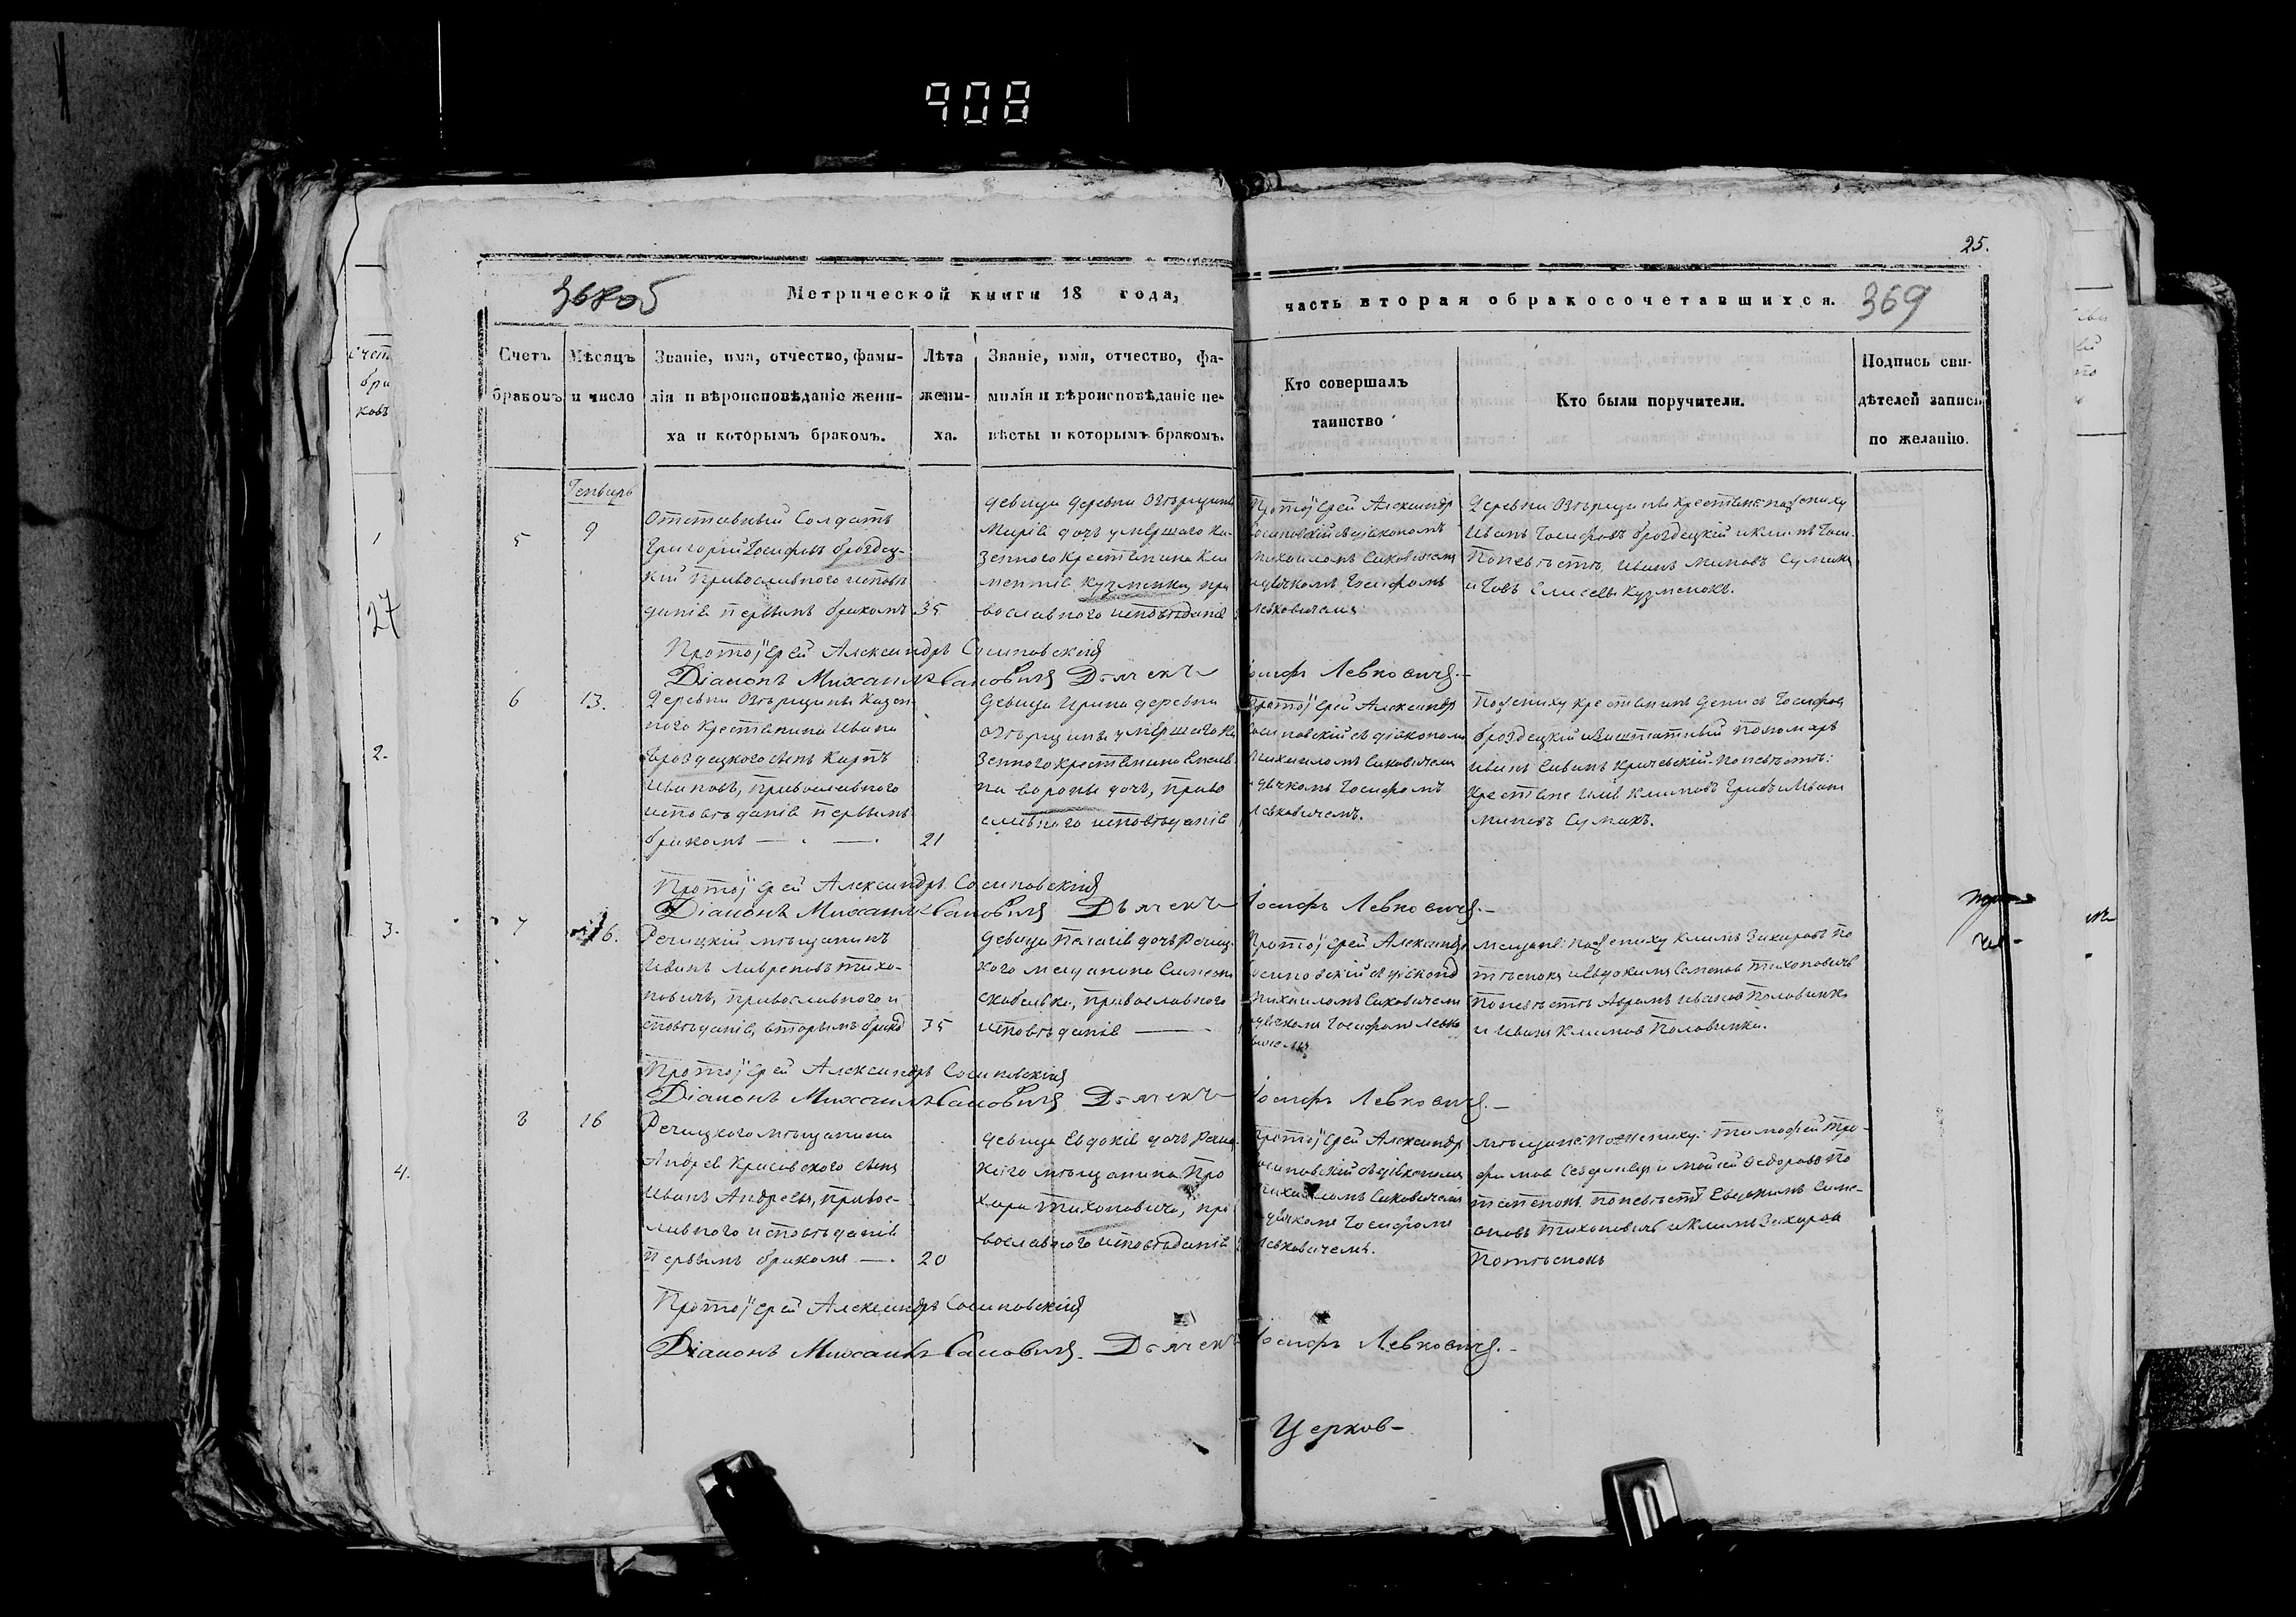 908
25.
368об
Метрической книги 18 года,
часть вторая о бракосочетавшихся.
369
Счетъ браковъ
Мѣсяцъ и число
Званіе, имя, отчество, фами-
лія и вѣроисповѣданіе жени-
ха и которымъ бракомъ.
Лѣта
жени-
ха.
Званіе, имя, отчество, фа-
милія и вѣроисповѣданіе не-
вѣсты и которымъ бракомъ.
Кто совершалъ
таинство
Кто были поручители.
Подпись сви-
дѣтелей записи
по желанію.
Генварь
5
9
Отставный Солдатъ
Григорій Іосифовъ Броздец-
кій православного исповѣ
данія первымъ бракомъ
35
девица деревни Озерщины
Марія дочь умершаго Ка-
зенного крестянина Кли
ментія Кузменка, пра
вославного исповѣданія
Протоіерей Александръ
Сосиновскій съ діакономъ
Михаиломъ Саковичемъ
и дячкомъ Іосифомъ
Левковичемъ
Деревни Озерщины крестяне: по жениху
Иванъ Іосифовъ Броздецкій и
По невѣстѣ, Иванъ Миновъ Сумакъ
и Іовъ Елисеевъ Кузменокъ.
Протоіерей Александръ Сосиновскій
Діаконъ Михаилъ Саковичъ Дьячекъ Іосифъ Левковичъ.
6
13.
Деревни Озерщины Казен
ного крестянина Ивана
Броздецкого сынъ Карпъ
Ивановъ, православного
исповѣданія первымъ
бракомъ
21
Девица Ирина деревни
Озерщины умершаго Ка
зенного крестянина
на Вороны дочь, право
славного исповѣданія
Протоіерей Александръ
Сосиновскій съ діакономъ
Михаиломъ Саковичемъ
и дячкомъ Іосифомъ
Левковичемъ.
По жениху крестянинъ Денисъ Іосифовъ
Броздецкій и Заштатный пономарь
Иванъ Кричевскій. По невѣстѣ:
Крестяне Илія Климовъ Грибъ и Иванъ
Миновъ Сумакъ.
Протоіерей Александръ Сосиновскій
Діаконъ Михаилъ Саковичъ Дьячекъ Іосифъ Левковичъ.
7
16.
Речицкій мѣщанинъ
Иванъ Лавреновъ Тихо-
новичъ, православного и
сповѣданія, вторымъ брако
35
Девица Пелагія дочь Речиц-
кого мещанина Симеона
православного
исповѣданія
Протоіерей Александръ
Сосиновскій съ діаконо
Михаиломъ Саковичемъ
и дячкомъ Іосифомъ Левко
вичемъ
мещане: по жениху Климъ Захаровъ По
тѣенокъ и Евдокимъ Семеновъ Тихоновичъ
По невѣстѣ Аврамъ Ивановъ Половинка
и Иванъ Климовъ Половинка.
Протоіерей Александръ Сосиновскій
Діаконъ Михаилъ Саковичъ Дьячекъ Іосифъ Левковичъ.
8
16
Речицкого мѣщанина
Андрея Красовского сынъ
Иванъ Андреевъ, правос-
лавного исповѣданія
первымъ бракомъ
20
девица Евдокія дочь Речиц-
кого мѣщанина Про
хора Тихоновича, пра
вославного исповѣданія
Протоіерей Александръ
Сосиновскій съ діакономъ
Михаиломъ Саковичемъ
и дячкомъ Іосифомъ
Левковичемъ.
мѣщане: по жениху: Тимофей Тро-
фимовъ и Мойсей Федоровъ По
По невѣстѣ Евдокимъ Симе-
оновъ Тихоновичъ и Климъ Захаровъ
Потѣенокъ
Протоіерей Александръ Сосиновскій
Діаконъ Михаилъ Саковичъ. Дьячекъ Іосифъ Левковичъ.
Церков-
1
27
2.
3.
4.